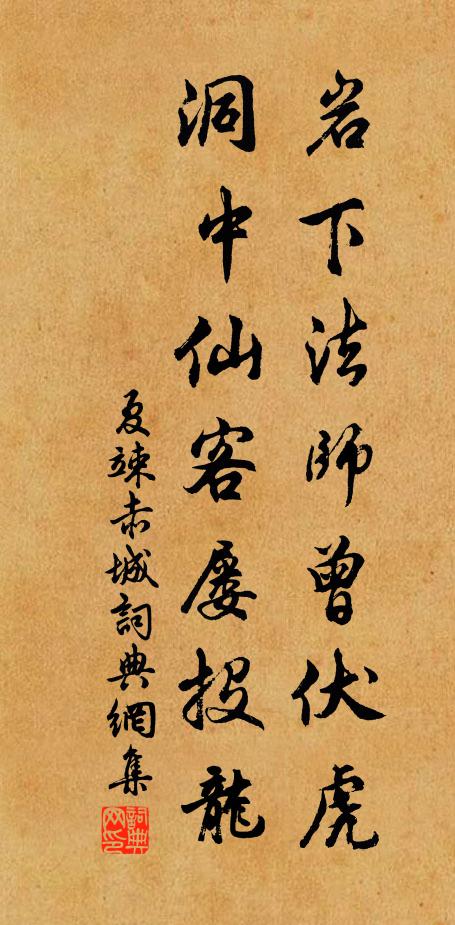 岩下法師曾伏虎
洞中仙客屡投龍
夏竦赤城詞典網集
詞典网印